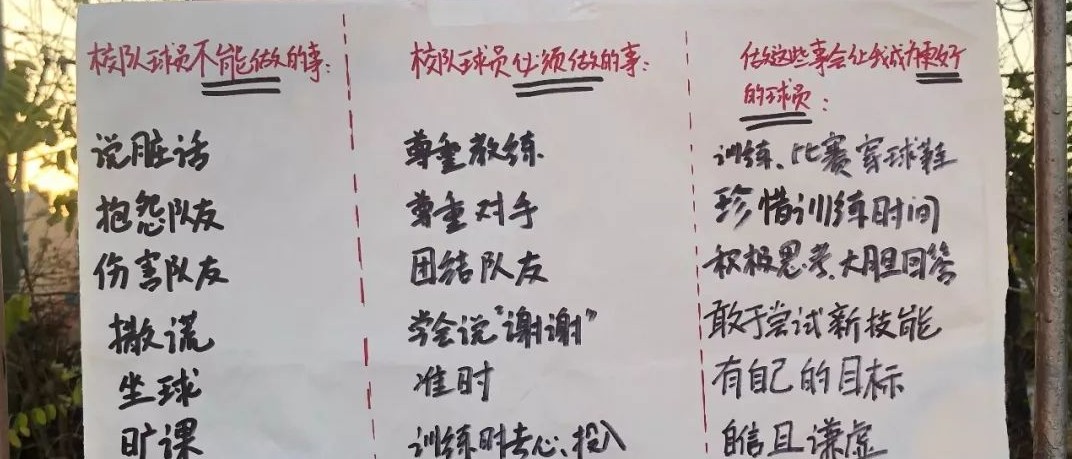 校队球员不能做的事:
说脏话
抱怨队友
伤害队友
撒谎
坐球
旷课
校队球员必须做的事:
尊重教练
尊重对手
团结队友
学会说“谢谢”
准时
训练时专心、投入
做这些事会让我成为更好
的球员:
训练、比赛穿球鞋
珍惜训练时间
积极思考、大胆回答
敢于尝试新技能
有自己的目标
自信且谦虚